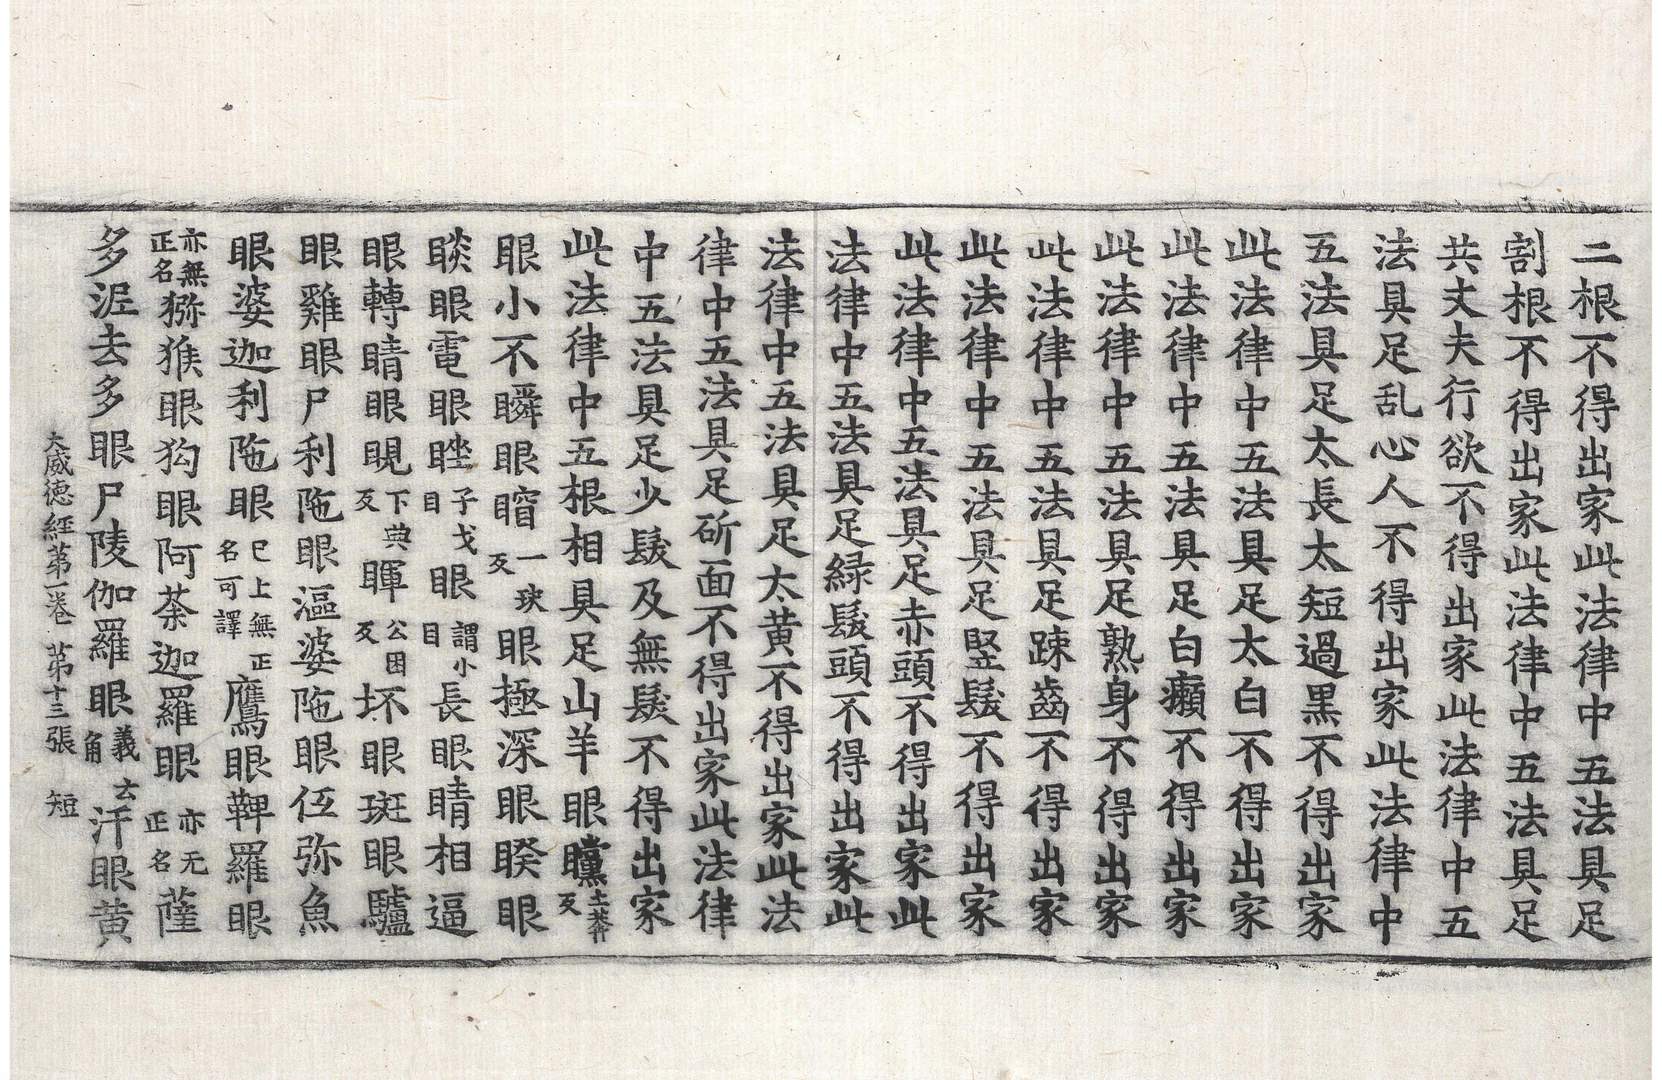 二根不得出家此法律中五法具足
割根不得出家此法律中五法具足
共丈夫行欲不得出家此法律中五
法具足乱心人不得出家此法律中
五法具足太長太短過黒不得出家
此法律中五法具足太白不得出家
此法律中五法具足白癩不得出家
此法律中五法具足熟身不得出家
此法律中五法具足踈齒不得出家
此法律中五法具足竪髮不得出家
此法律中五法具足赤頭不得出家此
法律中五法具足緑髮頭不得出家此
法律中五法具足太黄不得出家此法
律中五法具足斫面不得出家此法律
中五法具足少髮及無髮不得出家
此法律中五根相具足山羊眼矘土莽反
眼小不瞬眼䁱一玦反眼極深眼睽眼
睒眼電眼睉子戈目眼謂小目長眼睛相逼
眼轉睛眼睍下典反暉公困反坏眼斑眼驢
眼雞眼尸利陁眼漚婆陁眼伍弥魚
眼婆迦利陁眼巳上無正名可譯鷹眼鞞羅眼
亦無正名猕猴眼狗眼阿荼迦羅眼亦无正名薩
多泥去多眼尸陵伽羅眼義云角汗眼黄
大威徳經第一卷 第十三張 短